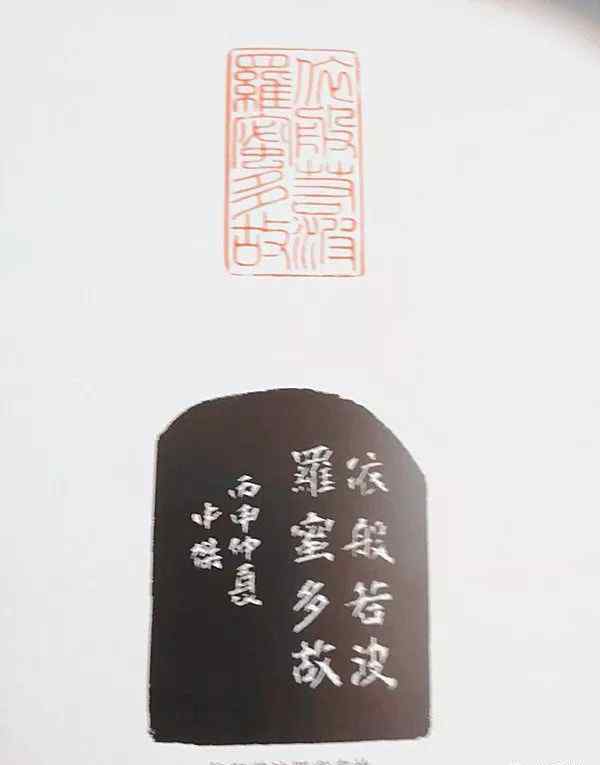 依般若波
羅蜜多故
依般若波
羅蜜多故
丙申仲夏